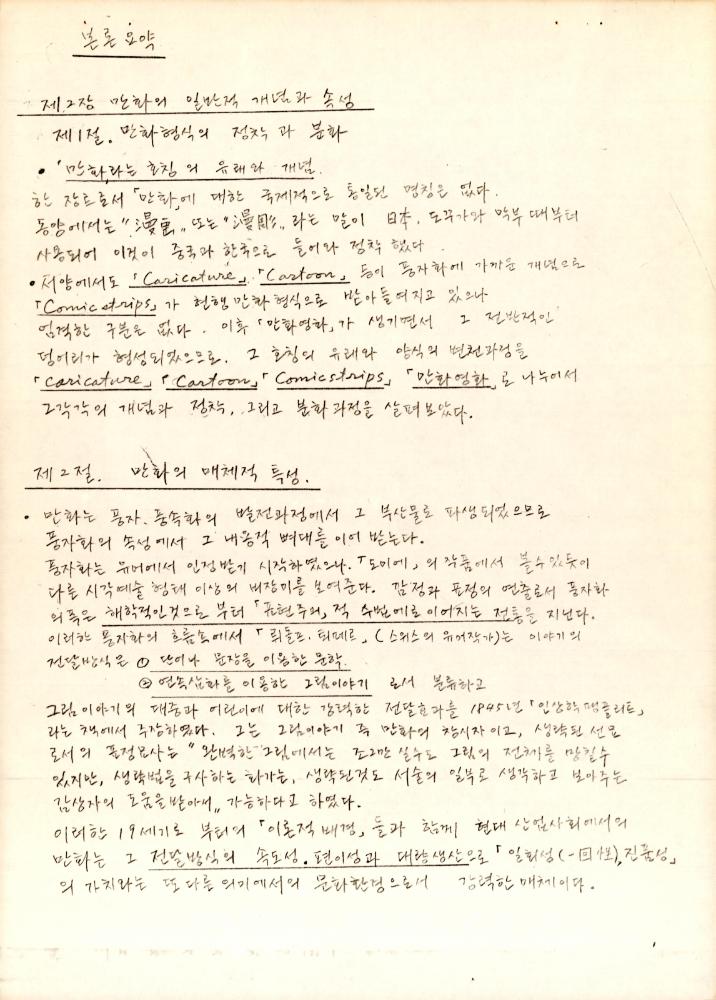 본론 요약
제2장 만화의 일반적 개념과 속성
제1절. 만화형식의 정착과 분화
• 「만화」라는 호칭의 유래와 개념.
한 장르로서 「만화」에 대한 국제적으로 통일된 명칭은 없다.
동양에서는 "漫畵" 또는 "漫 라는 말이 日本. 도꾸가와 막부 때부터
사용되어 이것이 중국과 한국으로 들어와 정착했다.
• 서양에서도 「Caricature」. 「Cartoon」 등이 풍자화에 가까운 개념으로
「Comic strips」가 현행 만화형식으로 받아들여지고 있으나
엄격한 구분은 없다. 이후 「만화영화」가 생기면서 그 전반적인
덩어리가 형성되었으므로. 그 호칭의 유래와 양식의 변천과정을
「caricature」 「Cartoon」 「Comicstrips」 「만화영화」로 나누어서
그각각의 개념과 정착, 그리고 분화과정을 살펴보았다.
제2절. 만화의 매체적 특성.
• 만화는 풍자. 풍속화의 발전과정에서 그 부산물로 파생되었으므로
풍자화의 속성에서 그 내용적 뼈대를 이어 받는다.
풍자화는 유머에서 인정받기 시작하였으나. 「도미에」의 작품에서 볼수있듯이
다른 시각예술 형태 이상의 비장미를 보여준다. 감정과 표정의 연출로서 풍자화
의 폭은 해학적인것으로 부터 「표현주의」적 수법에로 이어지는 전통을 지닌다.
이러한 풍자화의 흐름속에서 「뢰돌프. 퇴페르」 (스위스의 유머작가)는 이야기의
전달방식은 ① 단어나 문장을 이용한 문학.
② 연속삽화를 이용한 그림이야기 로서 분류하고
그림이야기의 대중과 어린이에 대한 강력한 전달효과를 1845년 「인상학팸플리트」
라는 책에서 주장하였다. 그는 그림이야기 즉 만화의 창시자이고, 생략된 선묘
로서의 표정묘사는 "완벽한 그림에서는 조그만 실수도 그림의 전체를 망칠수
있지만, 생략법을 구사하는 화가는, 생략된것도 서술의 일부로 생각하고 보아주는
감상자의 도움을 받아서" 가능하다고 하였다.
이러한 19세기로 부터의 「이론적 배경」들과 함께 현대 산업사회에서의
만화는 그 전달방식의 속도성. 편이성과 대량생산으로 「일회성(一回性), 진품성」
의 가치라는 또 다른 의미에서의 문화환경으로서 강력한 매체이다.